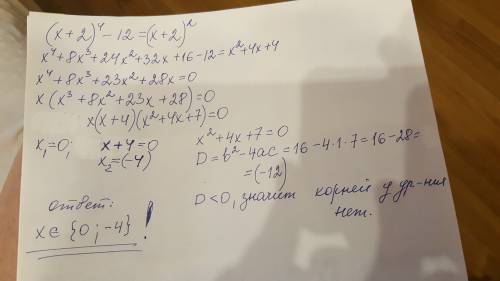 (x+2)⁴-12=(x+2)²
x⁴+8x³+24x²+32x+16-12=x²+4x+4
x⁴+8x³+23x²+28x=0
x(x³+8x²+23x+28)=0
x(x+4)(x²+4x+7)=0
x₁=0;
x+4=0
x₂=(-4)
x²+4x+7=0
D=b²-4ac=16-4·1·7=16-28=
=(-12)
D<0, значит корней у ур-ния
нет.
ответ:
x∈{0;-4}!